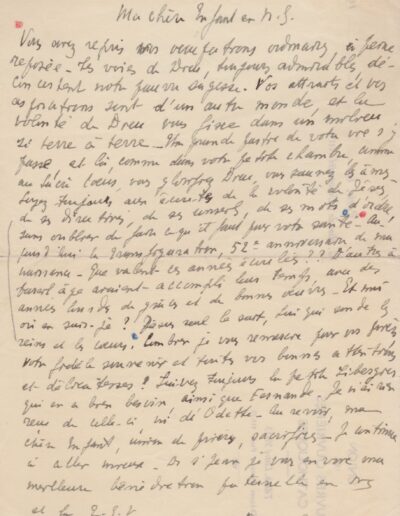 Ma chère Enfant en N.S.
Vous avez repris vos occupations ordinaires, à peine
reposée. Les voies de Dieu, toujours admirables, dé-
concertent notre pauvre sagesse. Vos attraits et vos
aspirations sont d'un autre monde, et la
volonté de Dieu vous fixe dans un milieu
si terre à terre. Une grande partie de votre vie s'y
passe, et là, comme dans votre petite chambre, comme
au Sacré Coeur, vous glorifiez Dieu, vous sauvez les âmes.
Soyez toujours aux écoutes de la volonté de Jésus,
de ses directives, de ses conseils, de ses mots d'ordre,
sans oublier de faire ce qu'il faut pour votre santé. Au-
jourd'hui la Transfiguration, 52e anniversaire de ma
naissance. Que valent ces années écoulées ?? D'autres à
pareil âge avaient accompli leur temps, avec des
années lourdes de grâces et de bonnes oeuvres. Et moi
où en suis-je ? Jésus seul le sait, Lui qui sonde les
reins et les coeurs. Combien je vous remercie pour vos prières
votre fidèle souvenir et toutes vos bonnes attentions
et délicatesses ! Suivez toujours la petite
qui en a bien besoin ainsi que Fernande. Je n'ai rien
reçu de celle-ci ni de Odette. Au revoir, ma
chère Enfant, union de prières, sacrifices. Je continue
à aller mieux. Di S. Jean je vous envoie ma
meilleure bénédiction paternelle en
et la